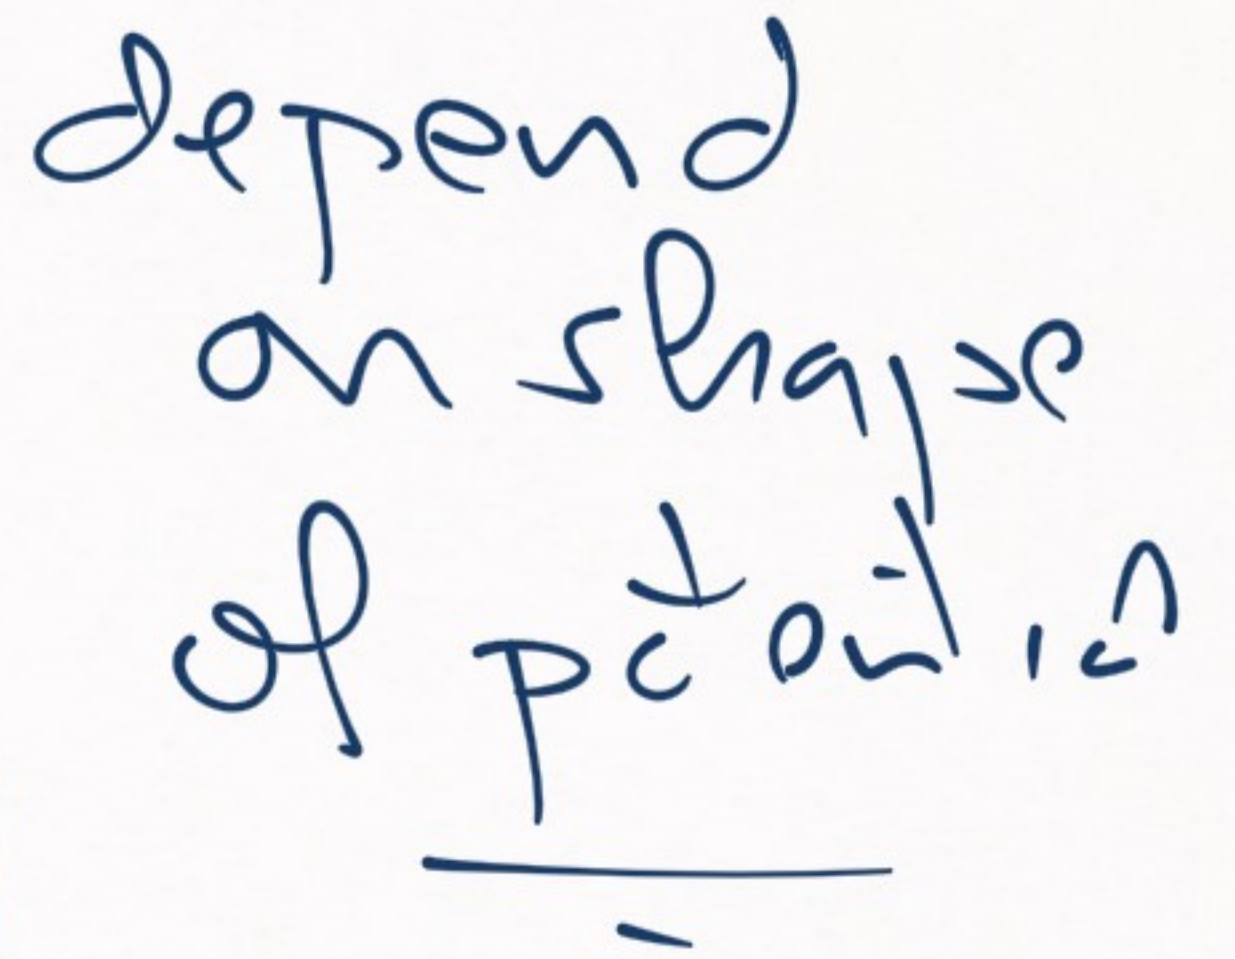 depend
on shape
of potential